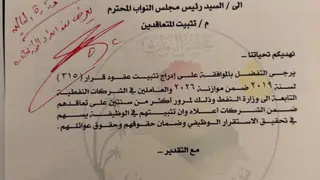 الى / السيد رئيس مجلس النواب المحترم
م / تثبيت المتعاقدين
نهديكم تحياتنا ...
يرجى التفضل بالموافقة على إدراج تثبيت عقود قرار (٣١٥)
لسنة ٢٠١٩ ضمن موازنة ٢٠٢٦ والعاملين في الشركات النفطية
التابعة الى وزارة النفط وذلك لمرور أكثر من سنتين على تعاقدهم
ضمن الشركات أعلاه وان تثبيتهم في الوظيفة يسهم
في تحقيق الاستقرار الوظيفي وضمان حقوقهم وحقوق عوائلهم .
مع التقدير ..